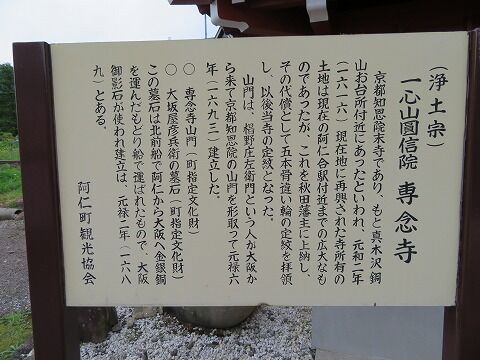 (浄土宗)
一心山圓信院 専念寺
京都知恩院末寺であり、もと真木沢銅
山お台所付近にあったといわれ、元和二年
(一六一六)現在地に再興された寺所有の
土地は現在の阿仁合駅付近までの広大なも
のであったが、これを秋田藩主に上納し、
その代償として五本骨違い輪の定紋を拝領
し、以後当寺の定紋となった。
山門は、椙野庄右衛門という人が大阪か
ら来て京都知恩院の山門を形取って元禄六
年(一六九三)建立した。
○ 専念寺山門(町指定文化財)
○ 大坂屋彦兵衛の墓石(町指定文化財)
この墓石は北前船で阿仁から大阪へ金銀銅
を運んだもどり船で運ばれたもので、大阪
御影石が使われ建立は、元禄二年(一六八
九)とある。
阿仁町観光協会